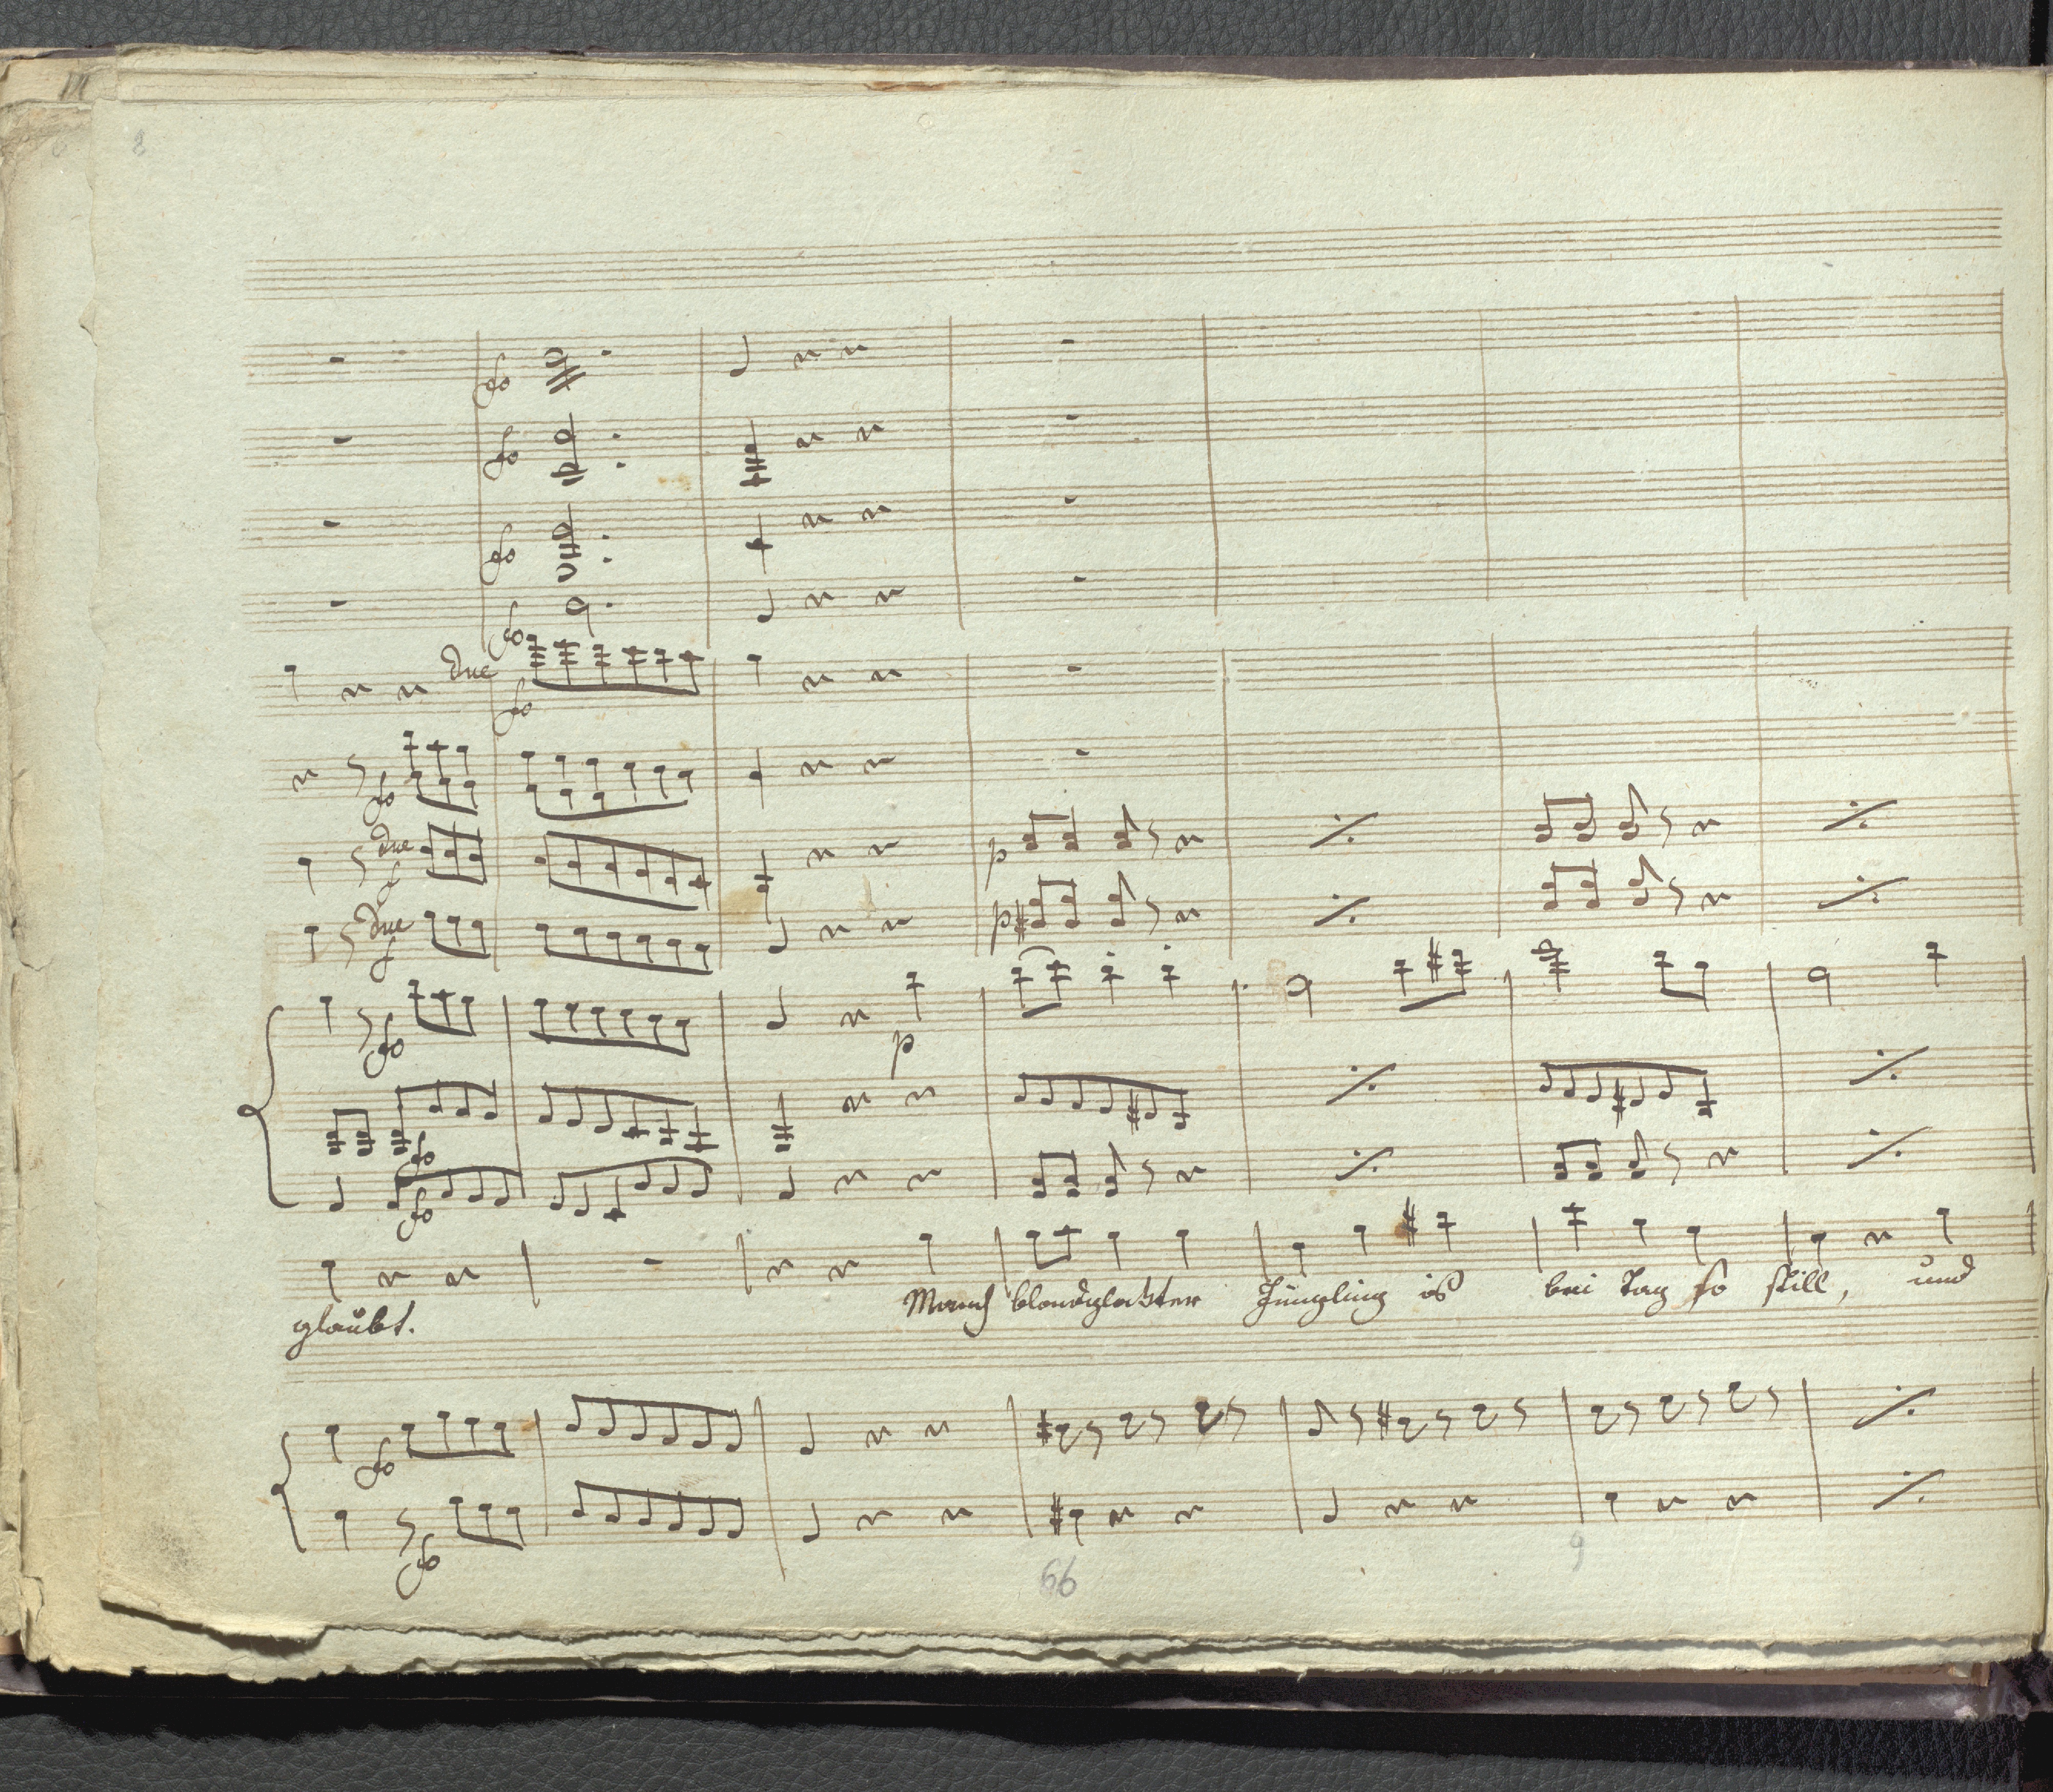 8
fo
fo
fo
fo
due
fo
fo
due
f
p
due
f
p
fo
p
fo
fo
Manch blondgelockter Jüngling is bei Tag so still, und
glaubt.
fo
fo
66
9